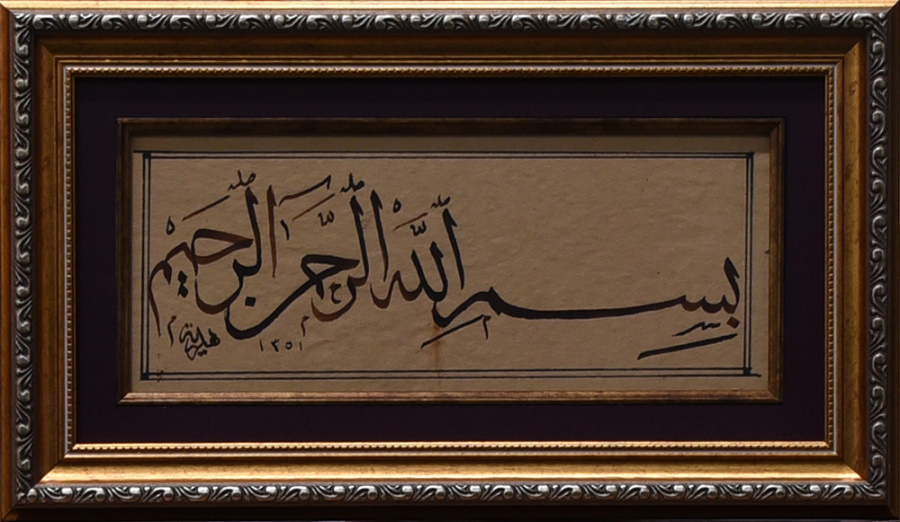 بِسْمِ اللّٰهِ الرَّحْمٰنِ الرَّحِيْمِ
١٣٥١